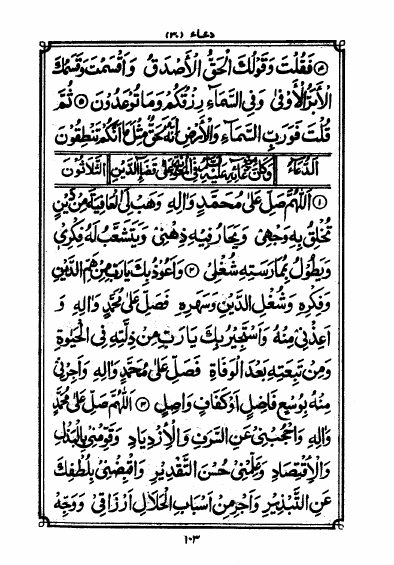 دعاء (۳۰)
فَقُلْتَ وَقَوْلُكَ الْحَقُّ الْأَصْدَقُ وَأَقْسَمْتَ وَقَسَمُكَ
الْأَبَرُّ الْأَوْفَى وَفِي السَّمَاءِ رِزْقُكُمْ وَمَا تُوعَدُونَ ۵ ثُمَّ
قُلْتَ فَوَرَبِّ السَّمَاءِ وَالْأَرْضِ إِنَّهُ لَحَقٌّ مِثْلَ مَا أَنَّكُمْ تَنْطِقُونَ
الدُّعَاءُ وَكَانَ مِنْ دُعَائِهِ عَلَيْهِ السَّلَامُ فِي الْمَعُونَةِ عَلَى قَضَاءِ الدَّيْنِ الثَّلَاثُونَ
۱ اَللّٰهُمَّ صَلِّ عَلَى مُحَمَّدٍ وَالِهِ وَهَبْ لِيَ الْعَافِيَةَ مِنْ دَيْنٍ
تُخْلِقُ بِهِ وَجْهِي وَيَحَارُ فِيهِ ذِهْنِي وَيَتَشَعَّبُ لَهُ فِكْرِي
وَيَطُولُ بِمُمَارَسَتِهِ شُغْلِي ۲ وَأَعُوذُ بِكَ يَا رَبِّ مِنْ هَمِّ الدَّيْنِ
وَفِكْرِهِ وَشُغْلِ الدَّيْنِ وَسَهَرِهِ فَصَلِّ عَلَى مُحَمَّدٍ وَالِهِ وَ
أَعِذْنِي مِنْهُ وَأَسْتَجِيرُ بِكَ يَا رَبِّ مِنْ ذِلَّتِهِ فِي الْحَيٰوةِ
وَمِنْ تَبِعَتِهِ بَعْدَ الْوَفَاةِ فَصَلِّ عَلَى مُحَمَّدٍ وَالِهِ وَأَجِرْنِي
مِنْهُ بِوُسْعٍ فَاضِلٍ أَوْ كَفَافٍ وَاصِلٍ ۳ اَللّٰهُمَّ صَلِّ عَلَى مُحَمَّدٍ
وَالِهِ وَاحْجُبْنِي عَنِ السَّرَفِ وَالْاِزْدِيَادِ وَقَوِّمْنِي بِالْبَذْلِ
وَالْاِقْتِصَادِ وَعَلِّمْنِي حُسْنَ التَّقْدِيرِ وَاقْبِضْنِي بِلُطْفِكَ
عَنِ التَّبْذِيرِ وَأَجْرِ مِنْ أَسْبَابِ الْحَلَالِ أَرْزَاقِي وَوَجِّهْ
۱۰۳